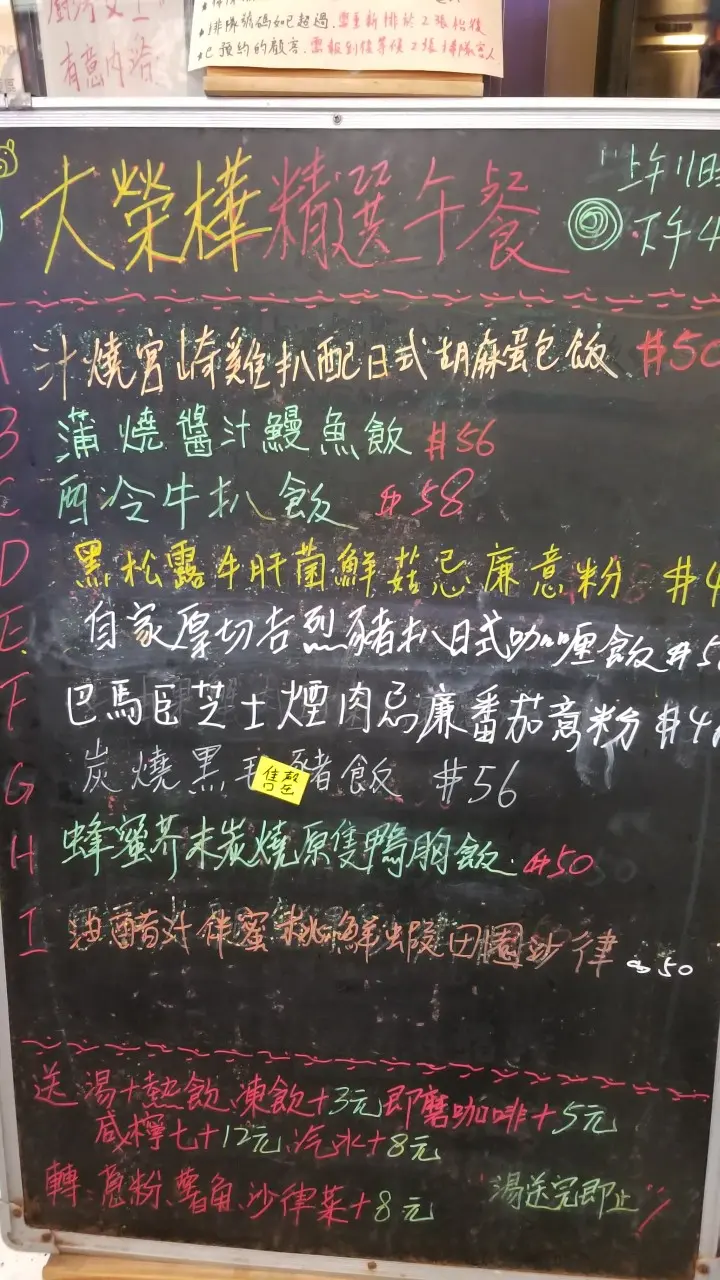 有意內洽
★排隊號碼如已超過.需重新排於2張枱後
★C預約的顧客.需報到後等候2張
大榮樺精選午餐
上午11時
下午4
A 汁燒宮崎雞扒配日式胡麻蛋包飯 #50
B 蒲燒醬汁鰻魚飯 #56
C 西冷牛扒飯 $58
D 黑松露牛肝菌鮮菇忌廉意粉 #4
E. 自家厚切吉烈豬扒日式咖喱飯 #5
F 巴馬臣芝士煙肉忌廉番茄意粉 #4
G 炭燒黑毛豬飯 #56
售罄
H 蜂蜜芥末炭燒原隻鴨胸飯. #50
I 油醋汁伴蜜桃鮮蝦田園沙律 50
送 湯+熱飲、凍飲+3元 即磨咖啡+5元
咸檸七+12元.汽水+8元
轉:意粉、薯角、沙律菜+8元 湯送完即止